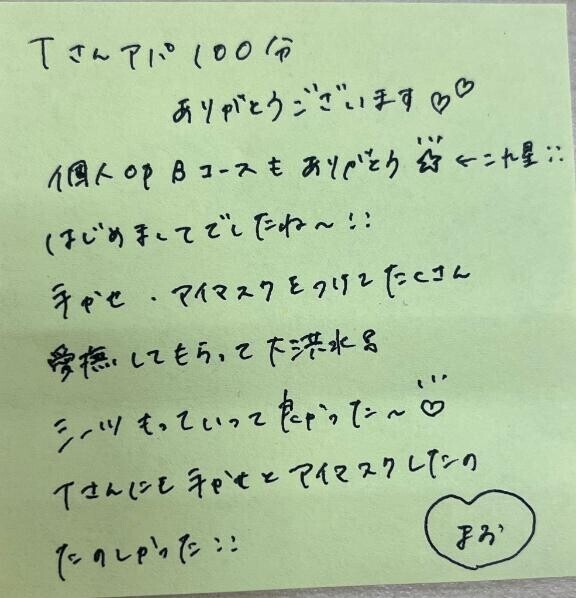 Tさんアパ100分
ありがとうございます♡♡
個人OP Bコースもありがとう☆←これ星!!
はじめましてでしたね～!!
手かせ・アイマスクをつけてたくさん
愛撫してもらって大洪水
シーツもっていって良かった～♡
Tさんにも手かせとアイマスクしたの
たのしかった!!
まお